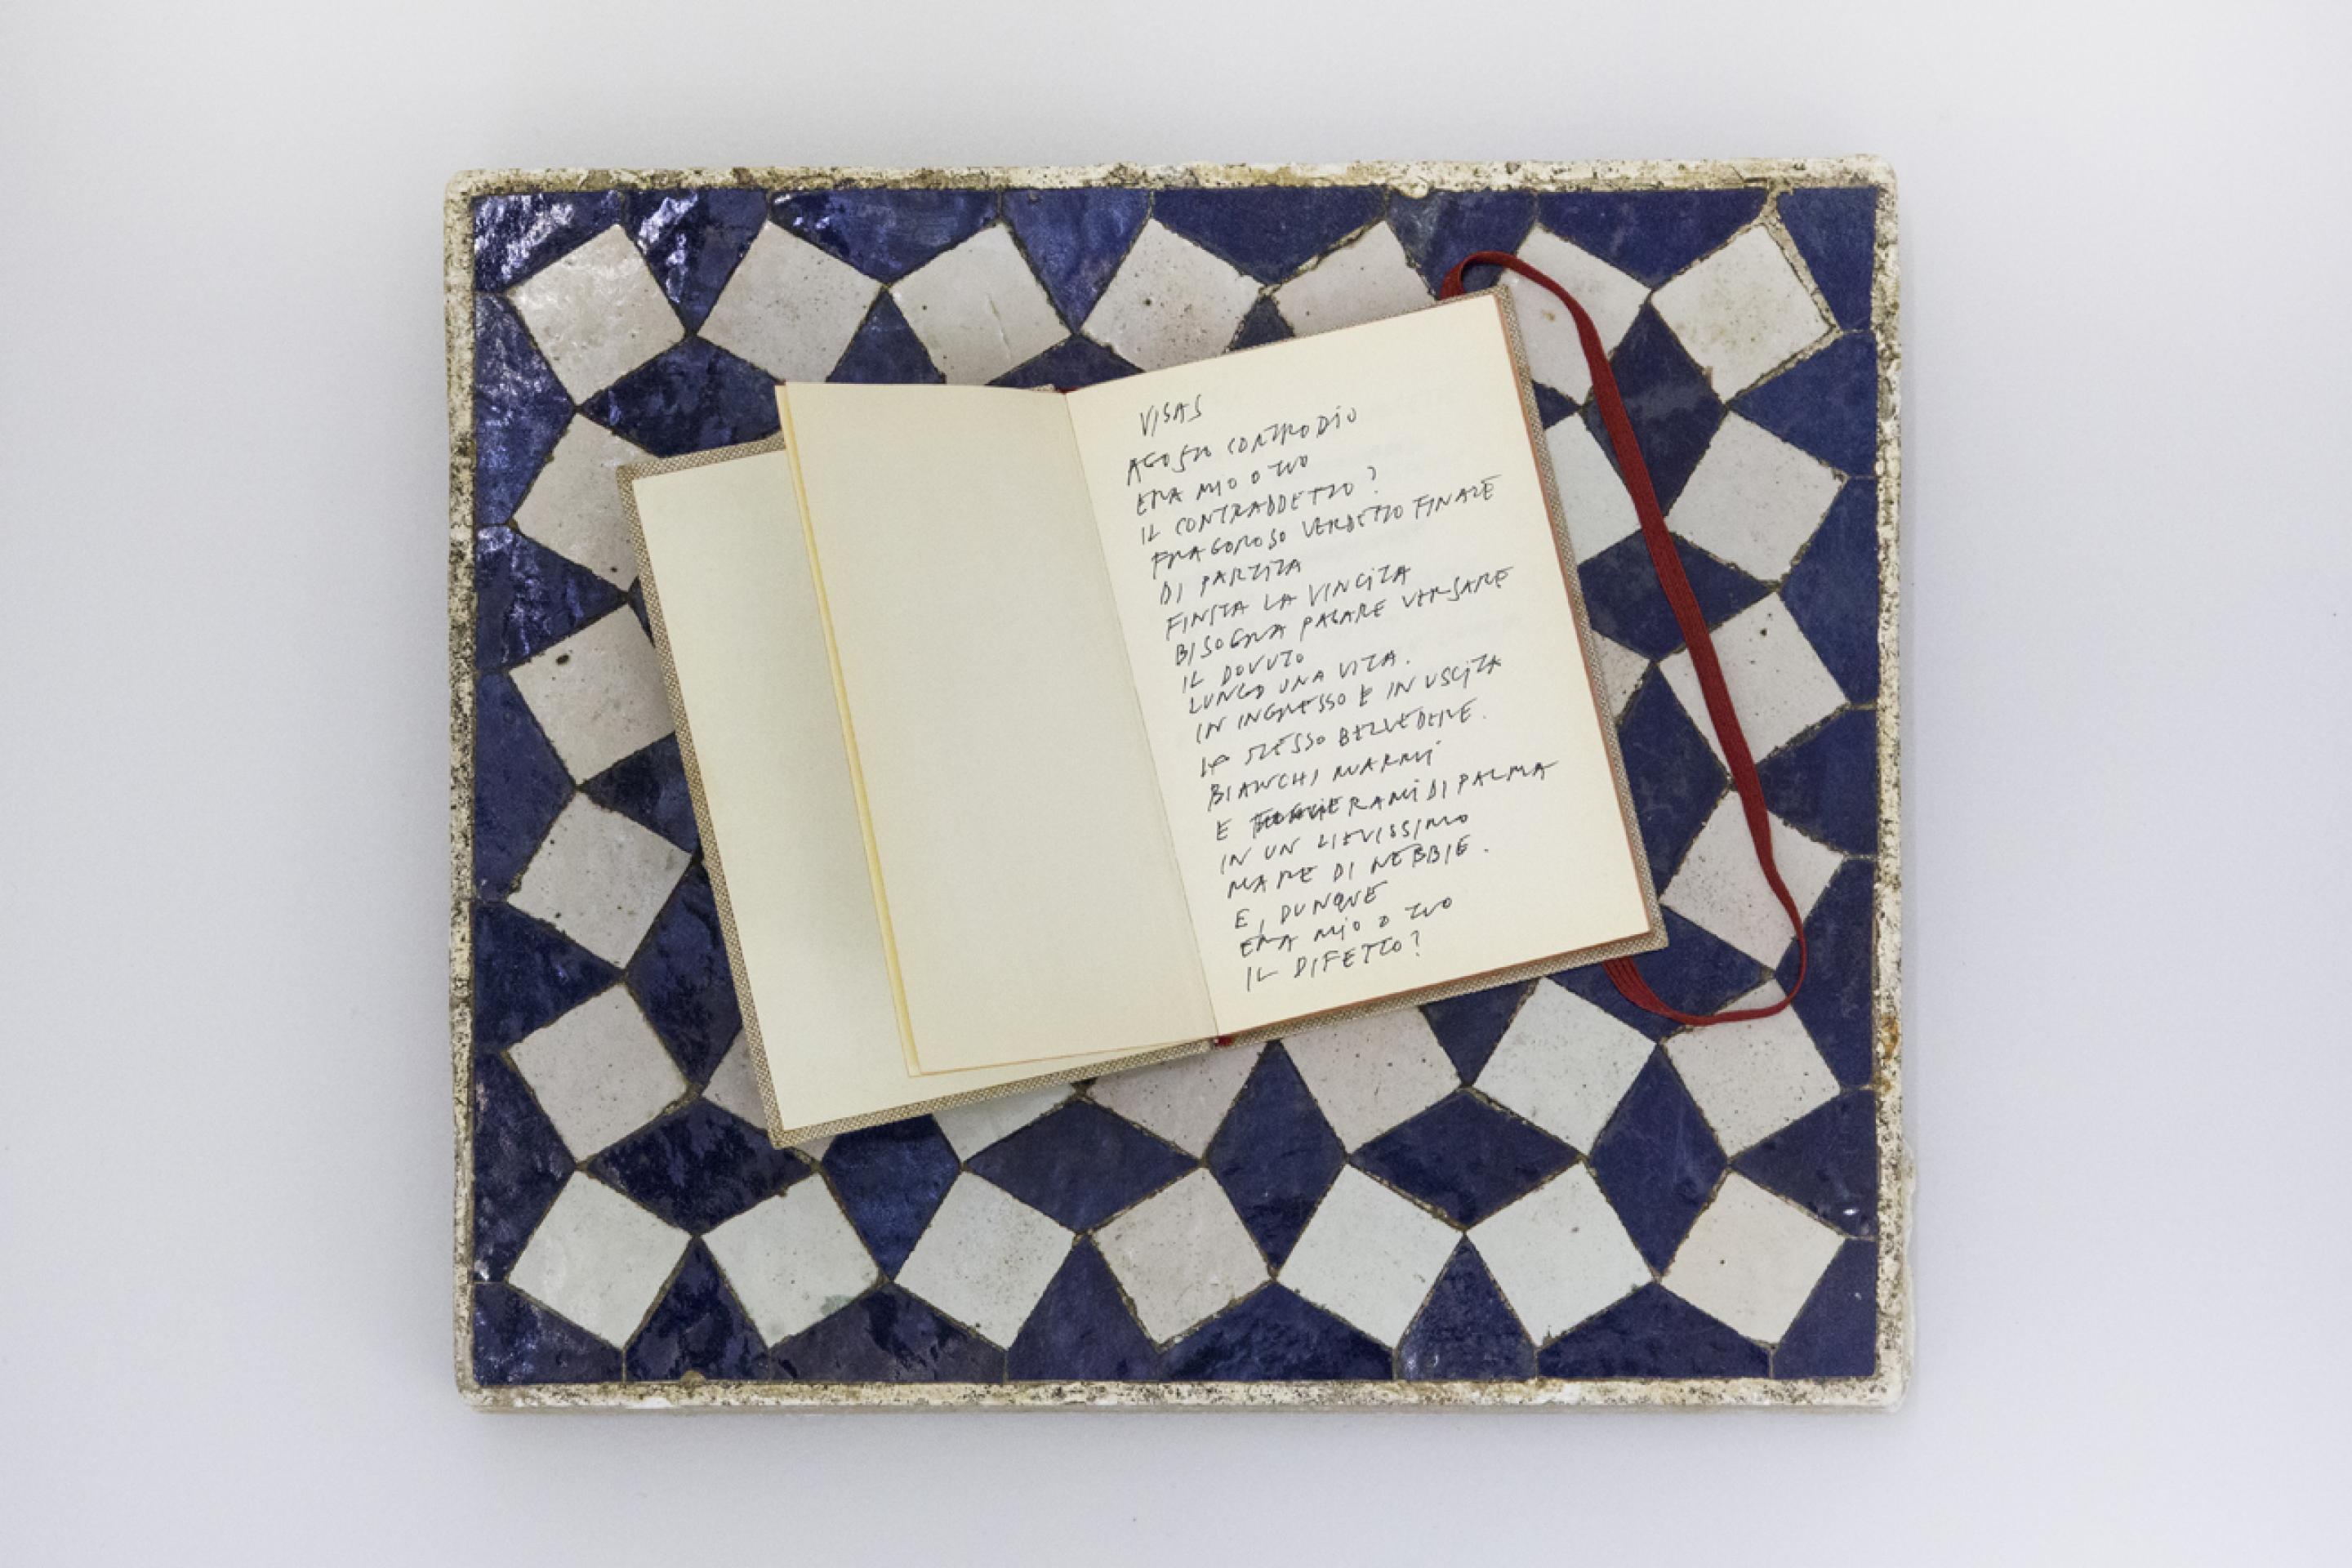 VISAS
AGOSTO CONTRO DIO
ERA MIO O TUO
IL CONTRADDETTO?
FRAGOROSO VERDETTO FINALE
DI PARTITA
FINITA LA VINCITA
BISOGNA PAGARE VERSARE
IL DOVUTO
LUNGO UNA VITA.
IN INGRESSO E IN USCITA
LO STESSO BELVEDERE.
BIANCHI MARMI
E RAMI DI PALMA
IN UN LIEVISSIMO
MARE DI NEBBIE.
E, DUNQUE
ERA MIO O TUO
IL DIFETTO?